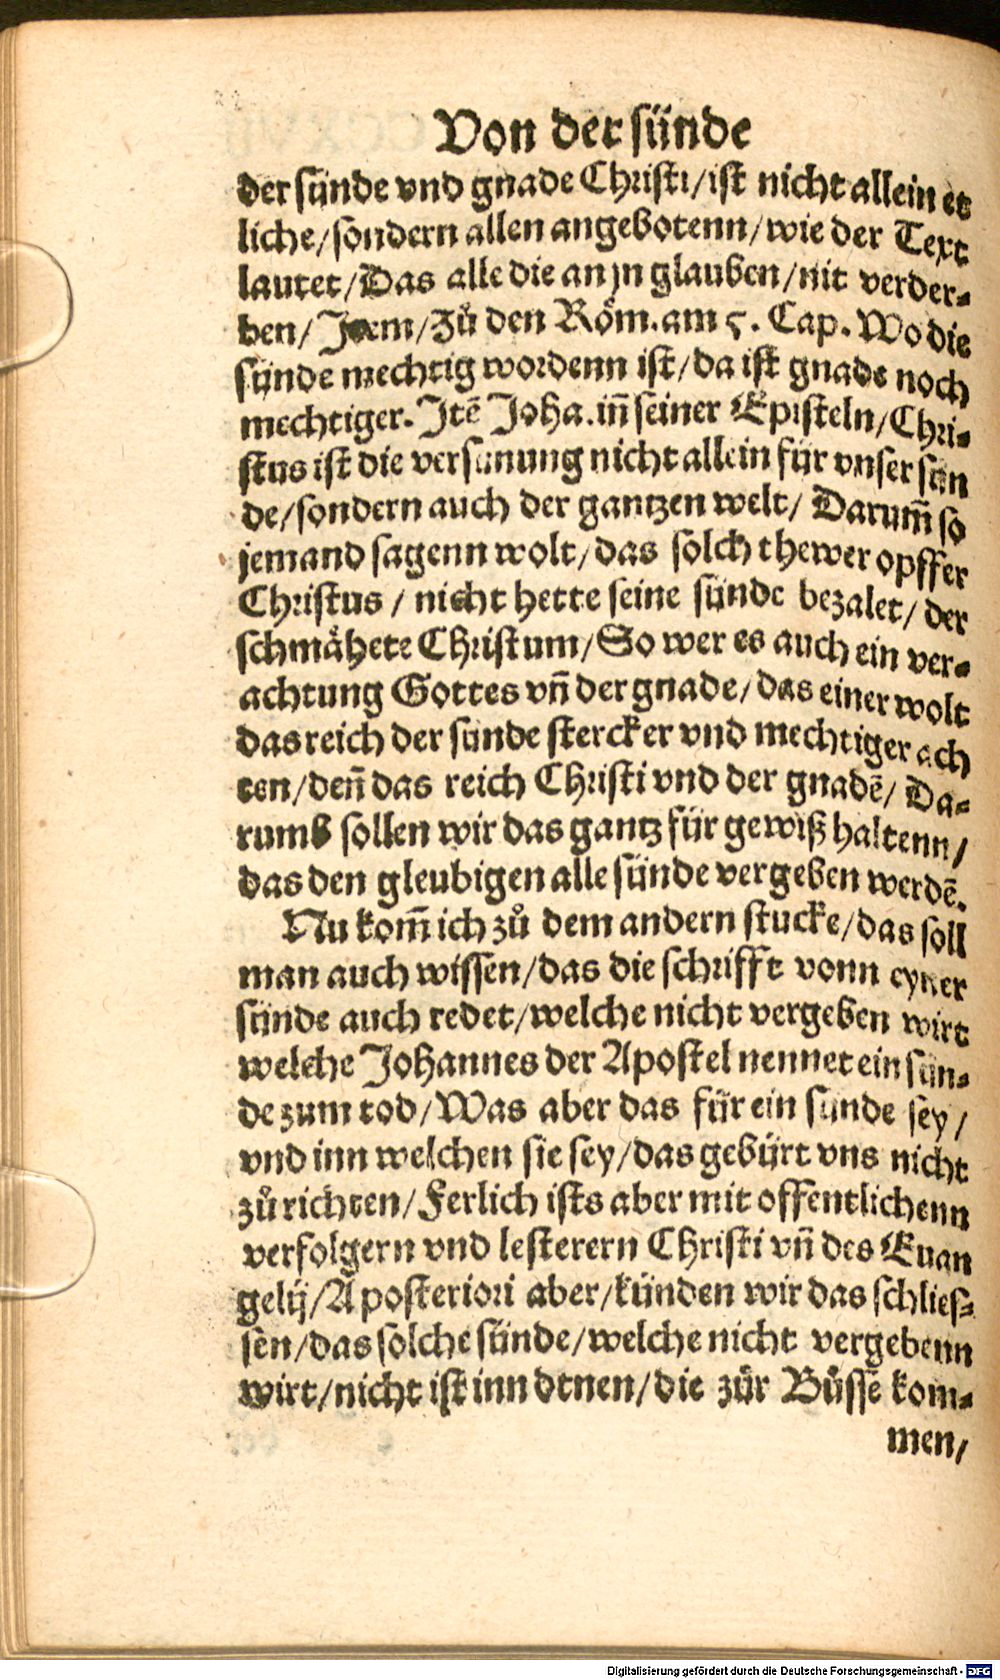 Von der sünde
der sünde vnd gnade Christi/ist nicht allein et
liche/sondern allen angebotenn/wie der Text
lautet/Das alle die an jn glauben/nit verder-
ben/Item/Zů den Röm.am 5. Cap. Wo die
sünde mechtig wordenn ist/da ist gnade noch
mechtiger. Itẽ Joha.iñ seiner Episteln/Chri-
stus ist die versünung nicht allein für vnser sün
de/sondern auch der gantzen welt/ Darum̃ so
jemand sagenn wolt/das solch thewer opffer
Christus / nicht hette seine sünde bezalet/ der
schmähete Christum/So wer es auch ein ver-
achtung Gottes vñ der gnade/das einer wolt
das reich der sünde stercker vnd mechtiger ach
ten/deñ das reich Christi vnd der gnadẽ/ Da-
rumb sollen wir das gantz für gewiß haltenn/
das den gleubigen alle sünde vergeben werdẽ.
Nu kom̃ ich zů dem andern stucke/das soll
man auch wissen/das die schrifft vonn eyner
sünde auch redet/welche nicht vergeben wirt
welche Johannes der Apostel nennet ein sün-
de zum tod/Was aber das für ein sünde sey/
vnd inn welchen sie sey/das gebürt vns nicht
zů richten/Ferlich ists aber mit offentlichenn
verfolgern vnd lesterern Christi vñ des Euan
gelij/A posteriori aber/künden wir das schlies-
sen/das solche sünde/welche nicht vergebenn
wirt/nicht ist inn dtnen/die zůr Bůssẽ kom-
men/
Digitalisierung gefördert durch die Deutsche Forschungsgemeinschaft - DFG